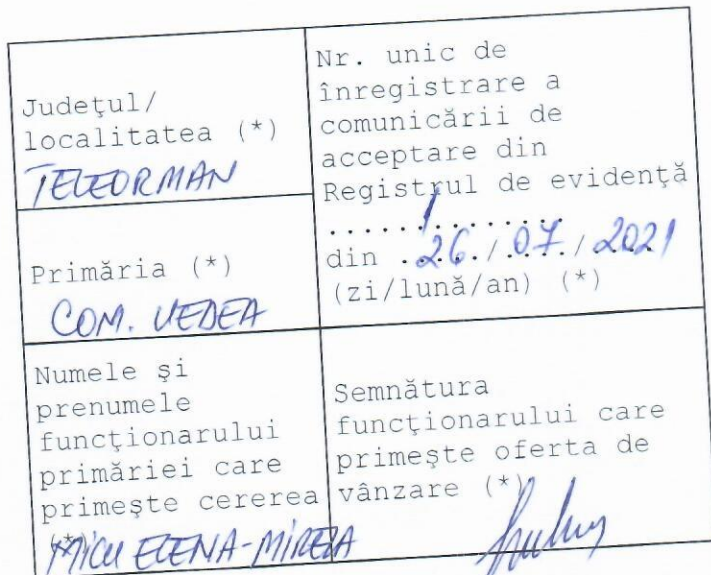 Județul/
localitatea (*)
TELEORMAN
Nr. unic de
înregistrare a
comunicării de
acceptare din
Registrul de evidență
.......1.......
din .26./.07./.2021
(zi/lună/an) (*)
Primăria (*)
COM. VEDEA
Numele și
prenumele
funcționarului
primăriei care
primește cererea
(*)
MICU ELENA-MIRELA
Semnătura
funcționarului care
primește oferta de
vânzare (*)